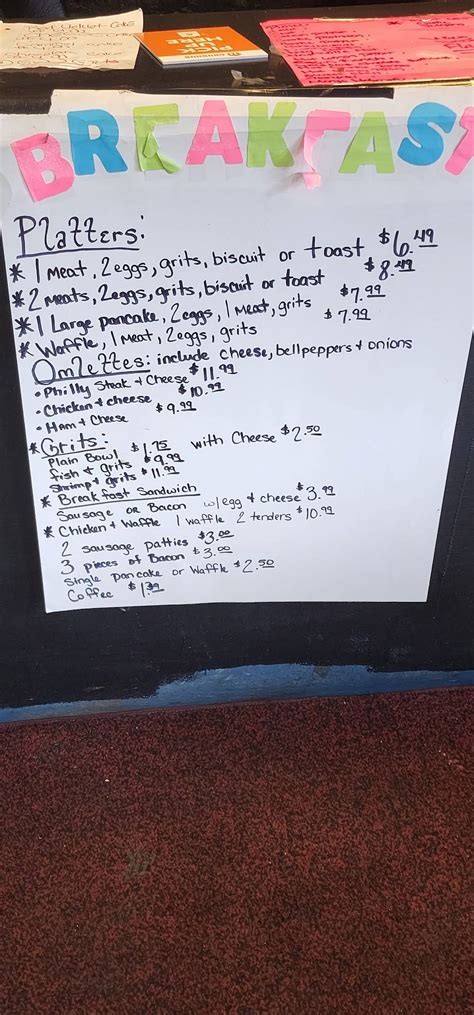 PICK
UP
HERE
BREAKFAST
Platters:
* 1 meat, 2 eggs, grits, biscuit or toast $6.49
* 2 meats, 2 eggs, grits, biscuit or toast $8.49
* 1 Large pancake, 2 eggs, 1 Meat, grits $7.99
* Waffle, 1 meat, 2 eggs, grits $7.99
Omlettes: include cheese, bellpeppers + onions
• Philly Steak + Cheese $11.99
• Chicken + cheese $10.99
• Ham + Cheese $9.99
* Grits:
Plain Bowl $1.75 with Cheese $2.50
fish + grits $9.99
Shrimp + grits $11.99
* Breakfast Sandwich
Sausage or Bacon w/egg + cheese $3.99
* Chicken + Waffle 1 waffle 2 tenders $10.99
2 sausage patties $3.00
3 pieces of Bacon $3.00
Single pancake or Waffle $2.50
Coffee